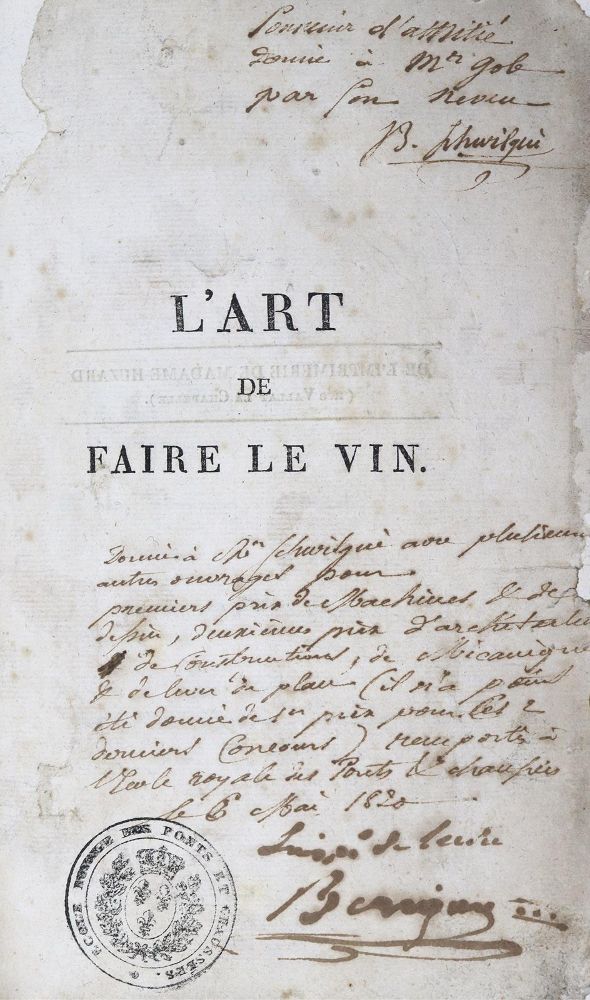 Souvenir d'amitié
donné à Mr gob
par son neveu
B. Schwilgué
L'ART
DE
FAIRE LE VIN.
DE L'IMPRIMERIE DE MADAME HUZARD
Donné à Mr Schwilgué avec plusieurs
autres ouvrages pour
premiers prix de Machines & de
dessin, deuxièmes prix d'architecture
& de Constructions, de Mécanique
& de levé de plan (il n'a point
été donné de 1er prix pour les 2
derniers Concours) remportés à
l'Ecole royale des Ponts & chaussées
le 6 Mai 1820
de l'école
ECOLE ROYALE DES PONTS ET CHAUSSÉES.